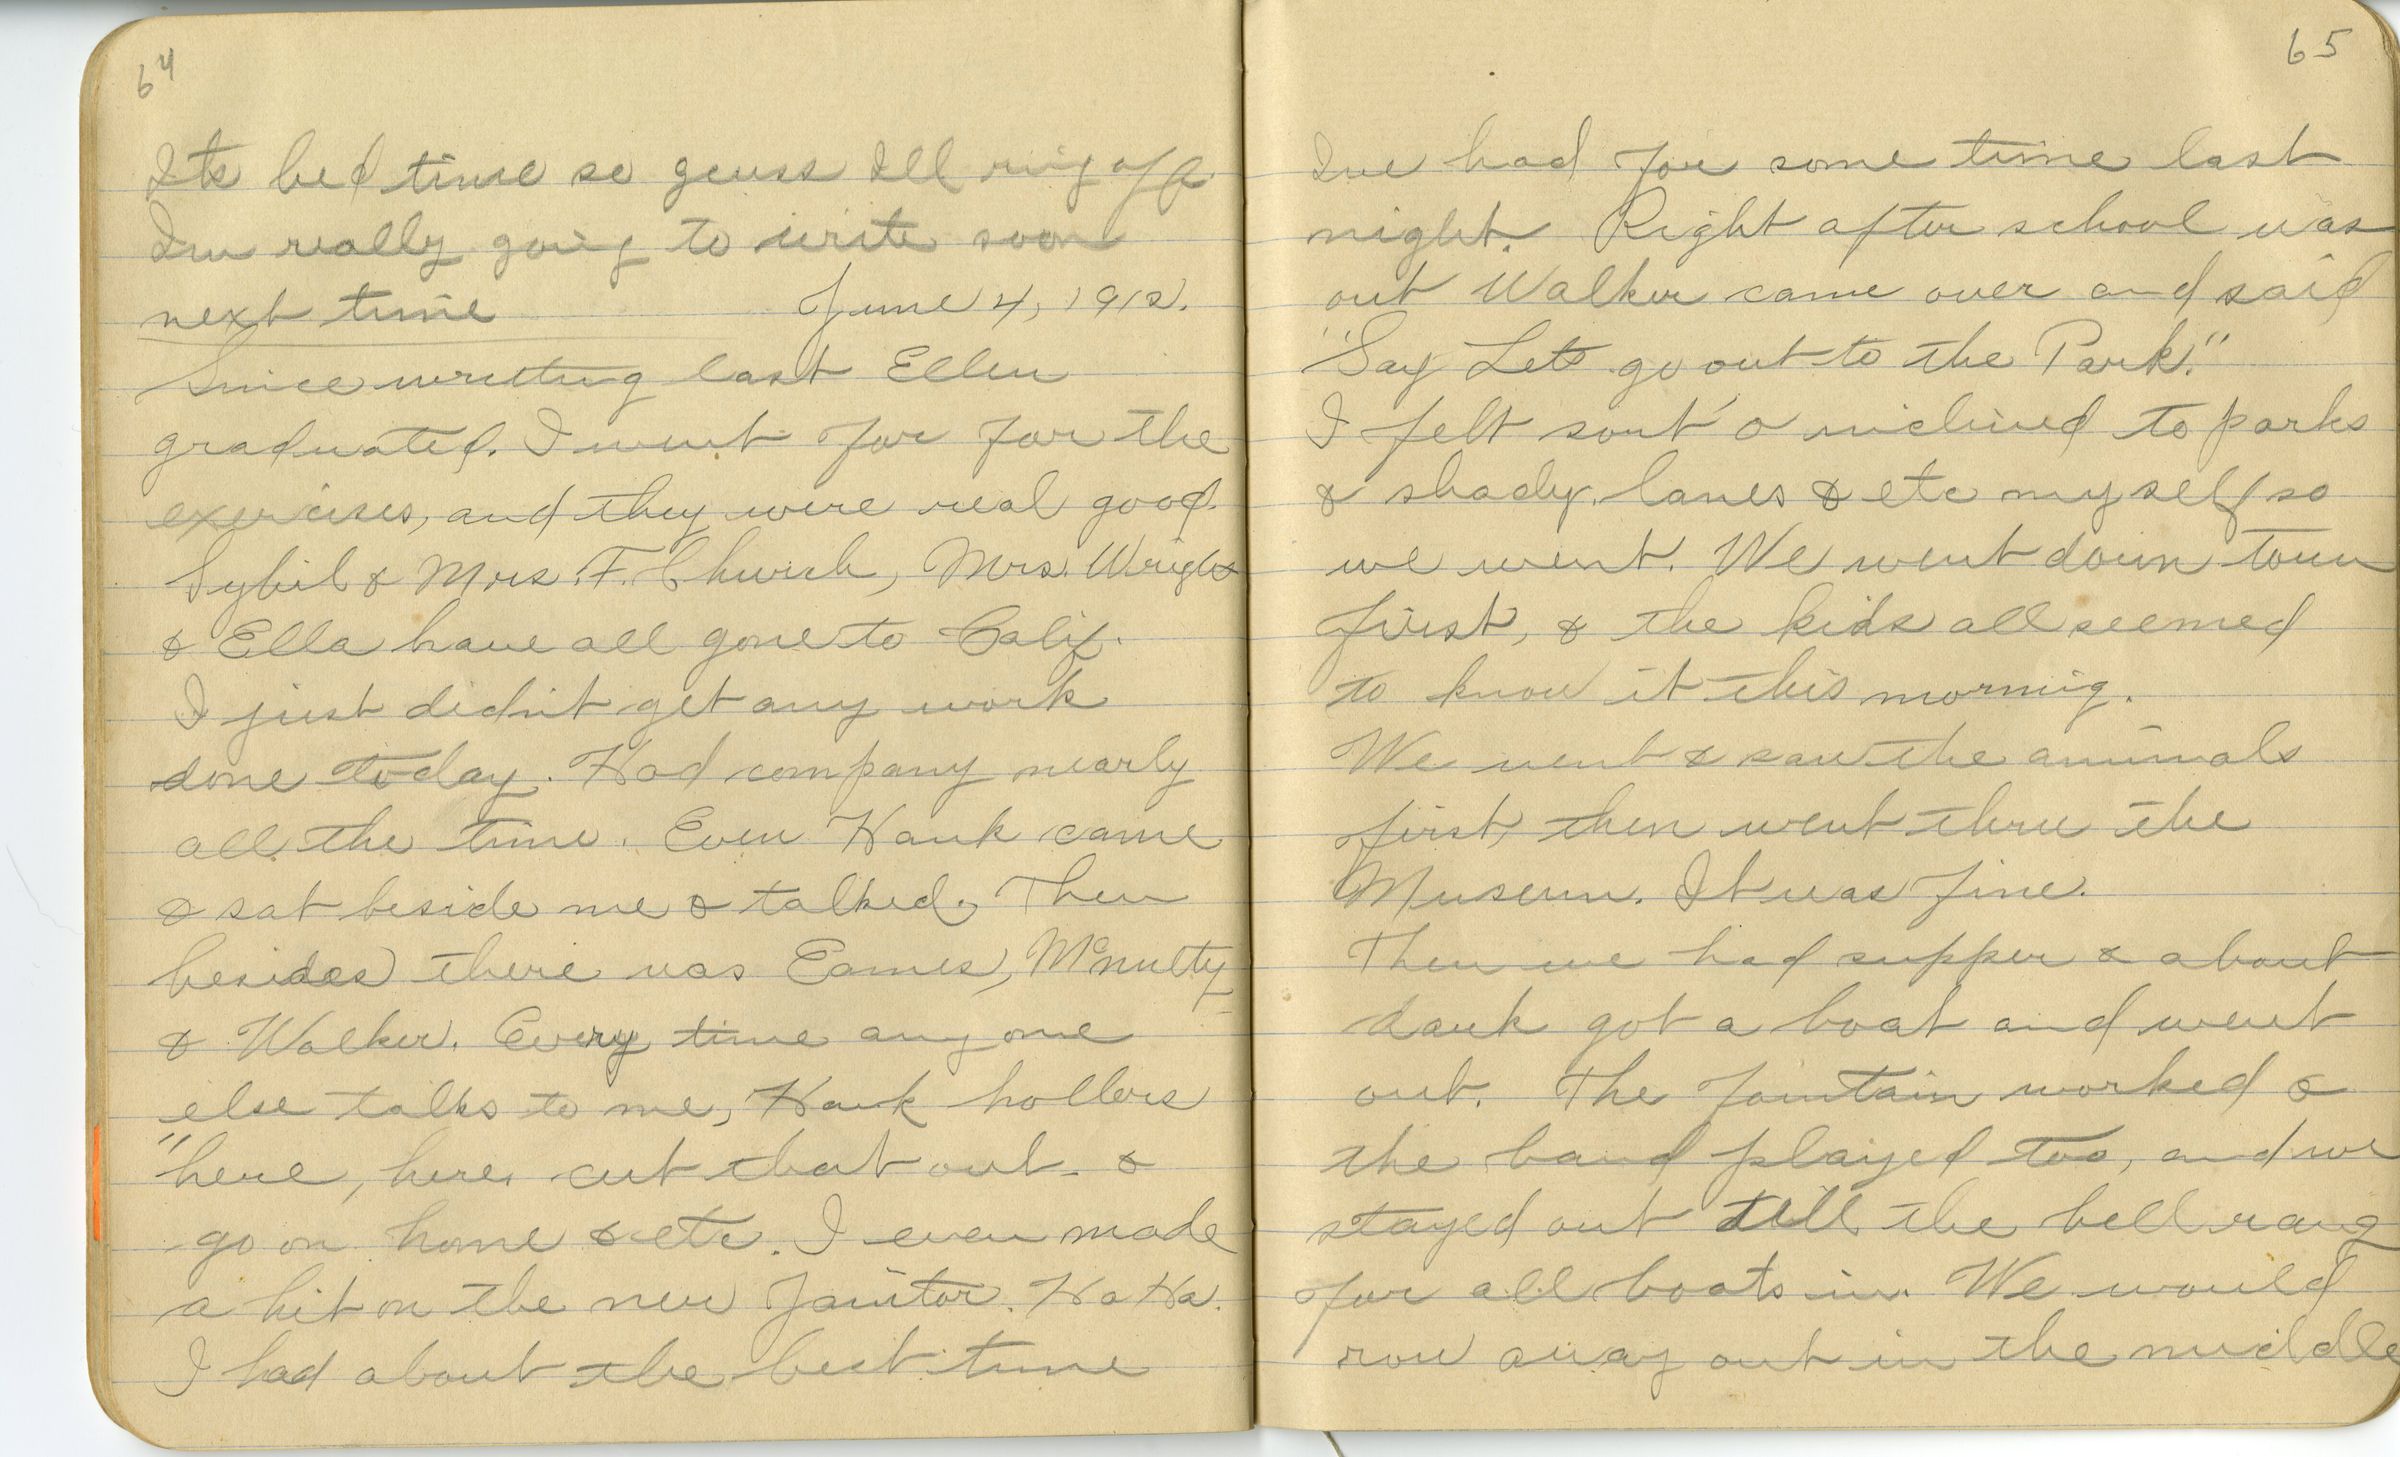 64
Its bed time so geuss Ill ring off.
Im really going to write soon
next time June 4, 1912.
Since writting last Ellen
graduated. I went for for the
exercises, and they were real good.
Sybil & Mrs. F. Church, Mrs. Wright
& Ella have all gone to Calif.
I just didn't get any work
done today. Had company nearly
all the time. Even Hank came
& sat beside me & talked. Then
besides there was Eames, McNulty
& Walker. Every time any one
else talks to me, Hank hollers
"here, here, cut that out- &
go on home & etc. I even made
a hit on the new Janitor. Ha Ha.
I had about the best time
65
Ive had for some time last
night. Right after school was
out Walker came over and said
"Say Lets go out to the Park."
I felt sort'o inclined to parks
& shady lanes & etc myself so
we went. We went down town
first, & the kids all seemed
to know it this morning.
We went & saw the animals
first, then went thru the
Museum. It was fine.
Then we had supper & about
dark got a boat and went
out. The fountain worked &
the band played too, and we
stayed out till the bell rang
for all boats in. We would
row away out in the middle